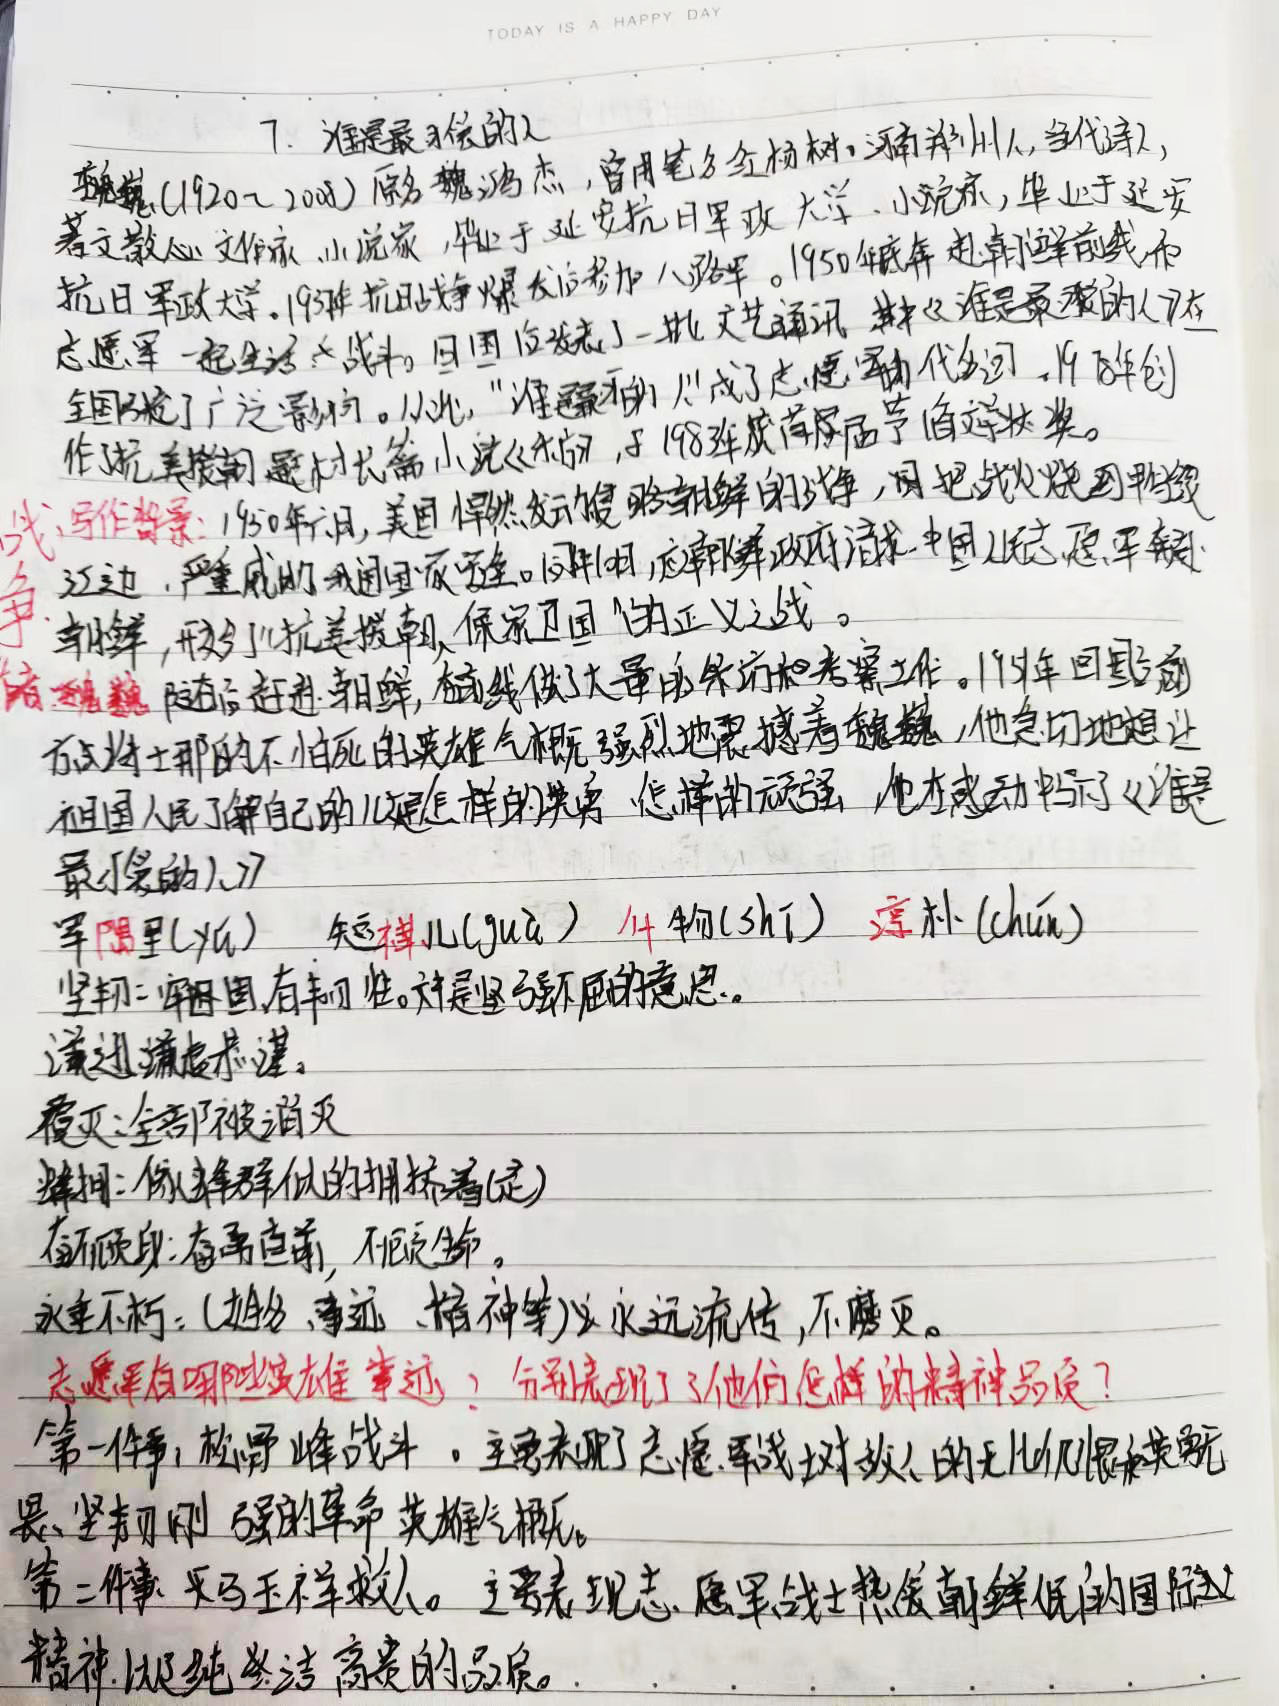 TODAY IS A HAPPY DAY
7. 谁是最可爱的人
魏巍(1920~2008)原名魏鸿杰,曾用笔名红杨树。河南郑州人,当代诗人,
著文散 文作家、小说家,毕业于延安抗日军政大学、小说家,毕业于延安
抗日军政大学。1937年抗日战争爆发后参加八路军。1950年底年赴朝鲜前线,和
志愿军一起生活、战斗。回国后发表了一批文艺通讯 其中《谁是最可爱的人》在
全国引起了广泛影响。从此,“谁是最可爱的人”成了志愿军的代名词。1978年创
作了抗美援朝题材长篇小说《东方》,于1983年获首届 茅盾文学奖。
写作背景:1950年六月,美国悍然发动侵略朝鲜的战争,并把战火烧到鸭绿
江边,严重威胁了我国国家安全。同年10月,应朝鲜政府请求,中国人民志愿军奔赴
朝鲜,形成了“抗美援朝、保家卫国”的正义之战。
战争
魏巍随后赶进朝鲜,在前线做了大量的采访和考察工作。1951年回国后前
方战士那的不怕死的英雄气概强烈地震撼着魏巍,他急切地想让
祖国人民了解自己的儿是怎样的英勇、怎样的顽强,他在感动中写了《谁是
最可爱的人》
军隅里(yú) 短褂儿(guà) 什物(shí) 淳朴(chún)
坚韧:牢固,有韧性。文中是坚强不屈的意思。
谦逊:谦虚恭谨。
覆灭:全部被消灭
蜂拥:像蜂群似的拥挤着(走)
奋不顾身:奋勇直前,不顾生命。
永垂不朽:(姓名、事迹、精神等)永远流传,不磨灭。
志愿军有哪些英雄事迹?分别表现了了他们怎样的精神品质?
第一件事,松骨峰战斗。主要表现了志愿军战士对敌人的无比仇恨和英勇无
畏、坚韧刚强的革命英雄气概。
第二件事 马玉祥救人。主要表现志愿军战士热爱朝鲜人民的国际主义
精神,以及纯洁高贵的品质。